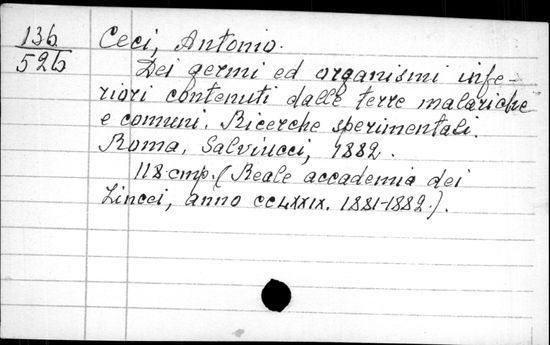 136 Ceci, Antonio.
526 Dei germi ed organismi infe-
riori contenuti dalle terre malariche
e comuni. Ricerche sperimentali.
Roma, Salviucci, 1882.
118 стр. (Reale accademia dei
Lincei, anno CCLXXIX. 1881-1882.).